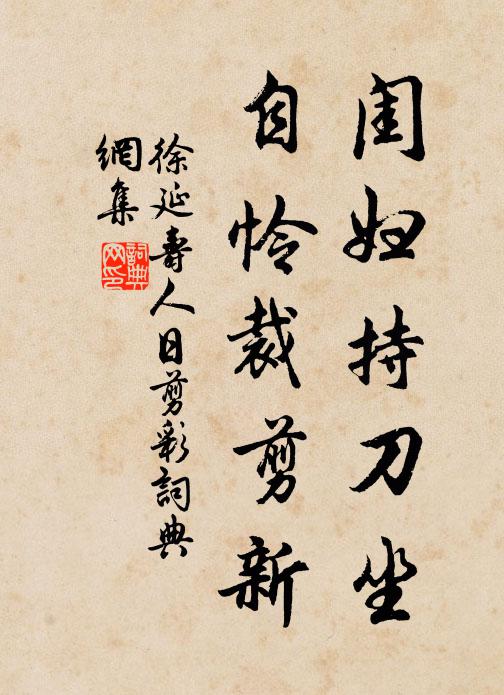 闺妇持刀坐
自怜裁剪新
徐延寿人日剪彩詞典
網集
詞典网印